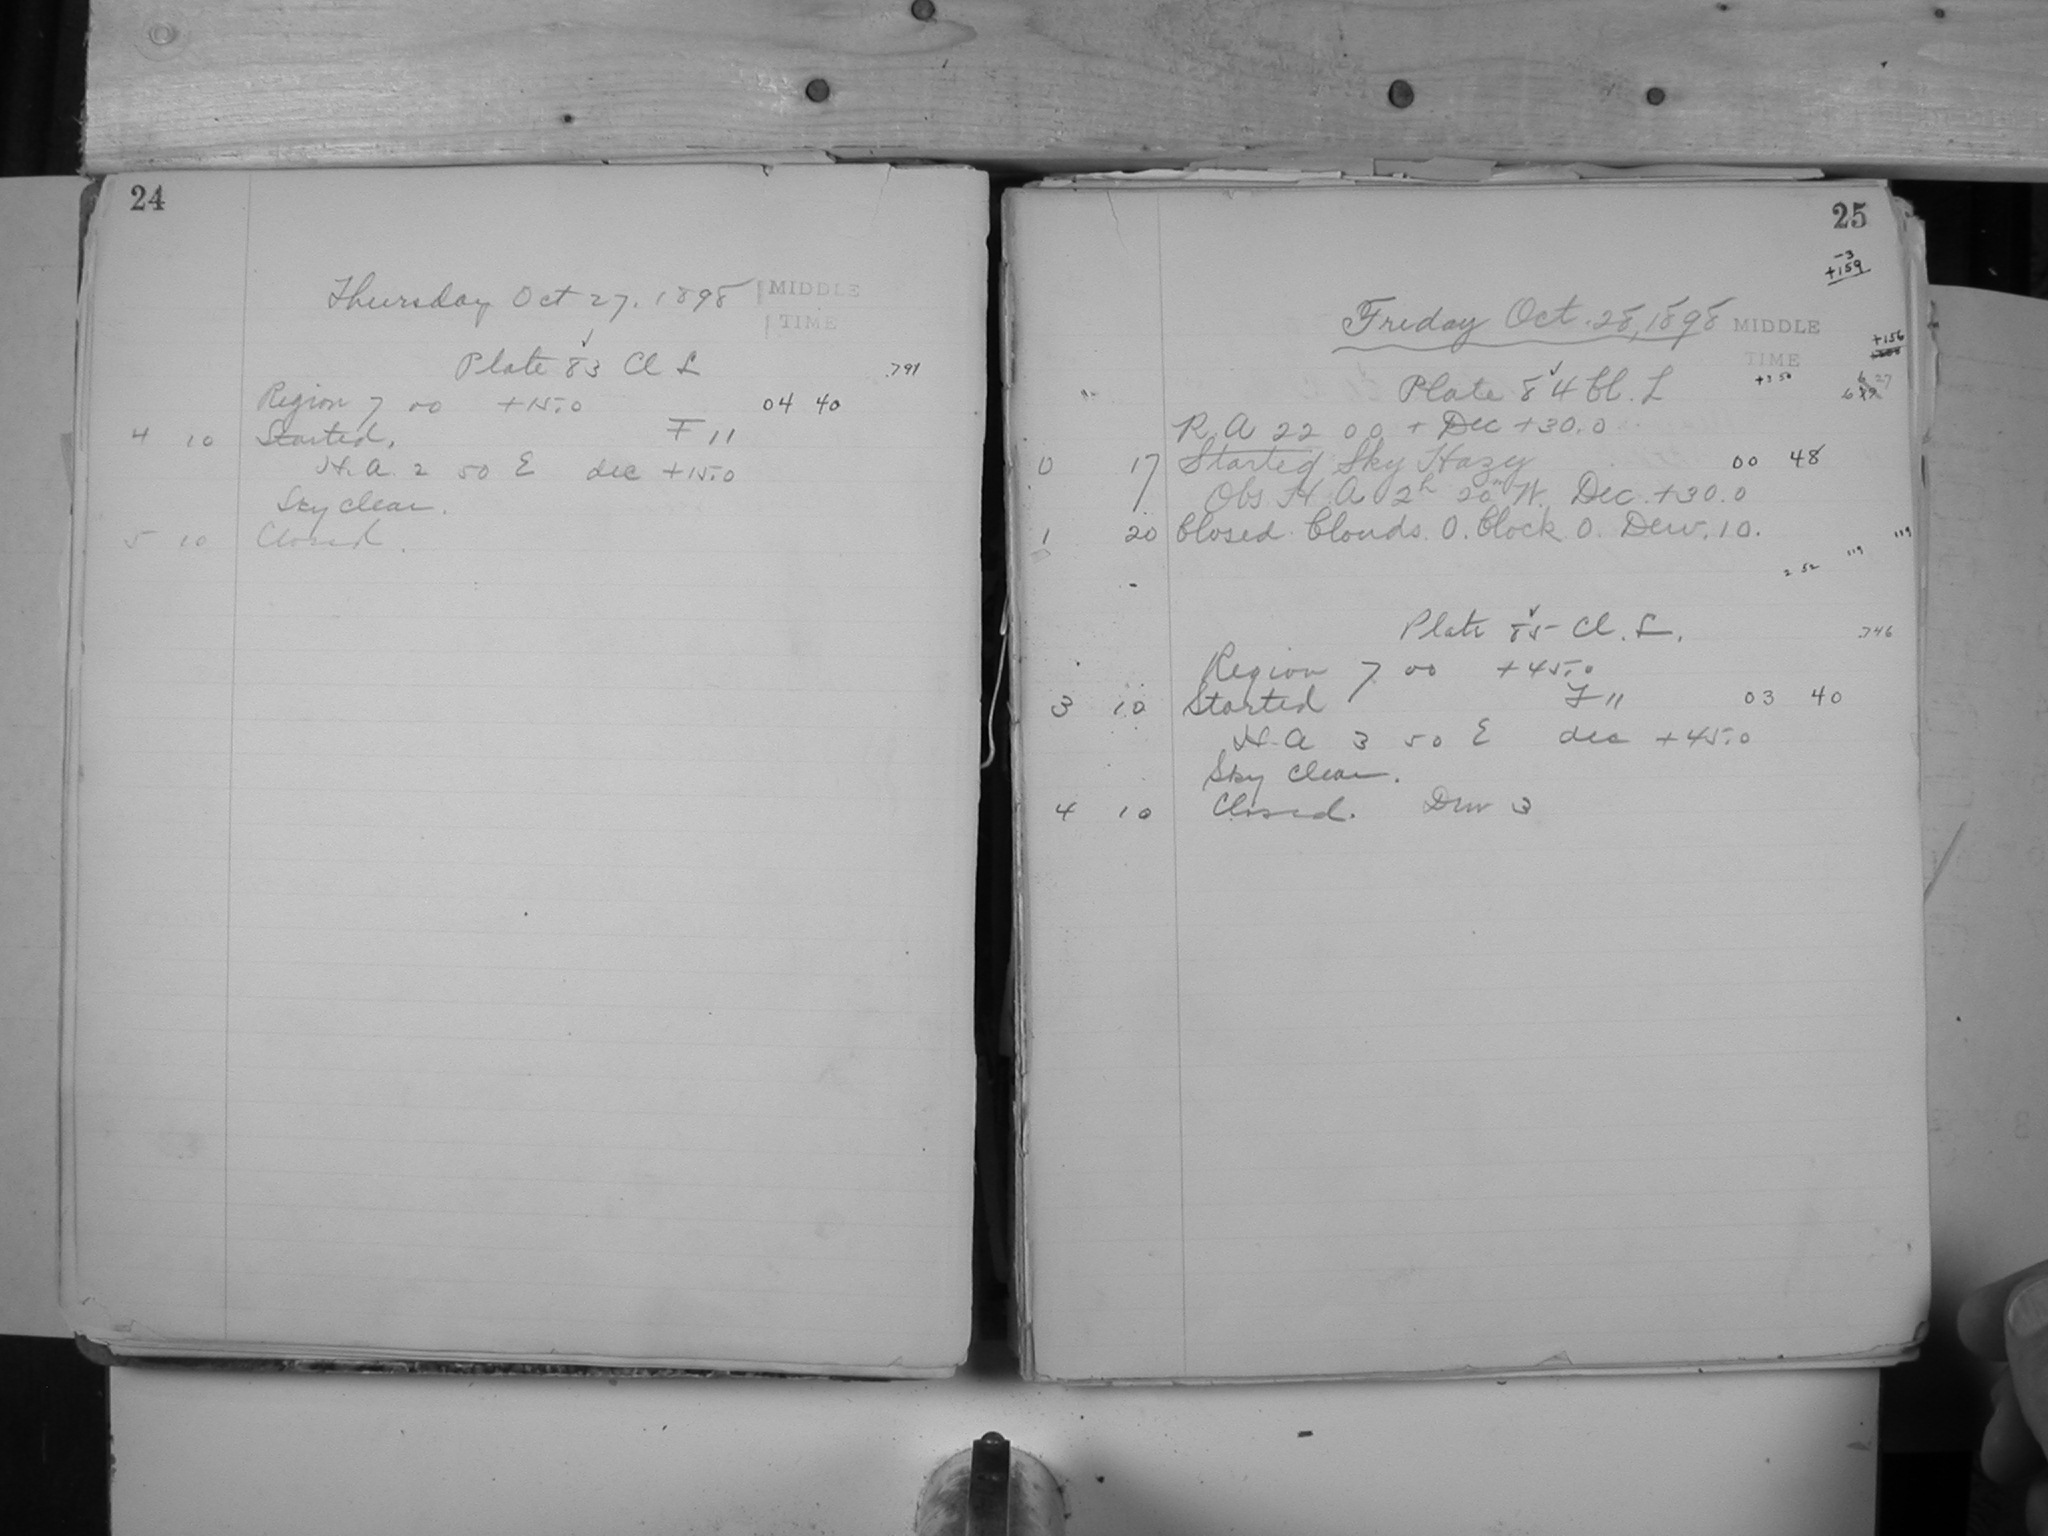 24
Thursday Oct 27. 1898 MIDDLE
TIME
Plate 83 Cl L .791
Region 7 00 +15.0 04 40
4 10 Started, F 11
H. A. 2 50 E dec +15.0
Sky clear.
5 10 Closed.
25
-3
+159
Friday Oct. 28, 1898 MIDDLE
TIME
+156
Plate 84 Cl. L +3 50 6 27
R A 22 00 + Dec +30.0
0 17 Started Sky Hazy 00 48
Obs H. A 2h 20m W. Dec. +30.0
1 20 Closed. Clouds. 0. Clock 0. Dew. 10.
119 119
2 52
Plate 85 Cl. L. .746
Region 7 00 +45.0
3 10 Started F 11 03 40
H. A 3 50 E dec +45.0
Sky Clear.
4 10 Closed. Dew 3